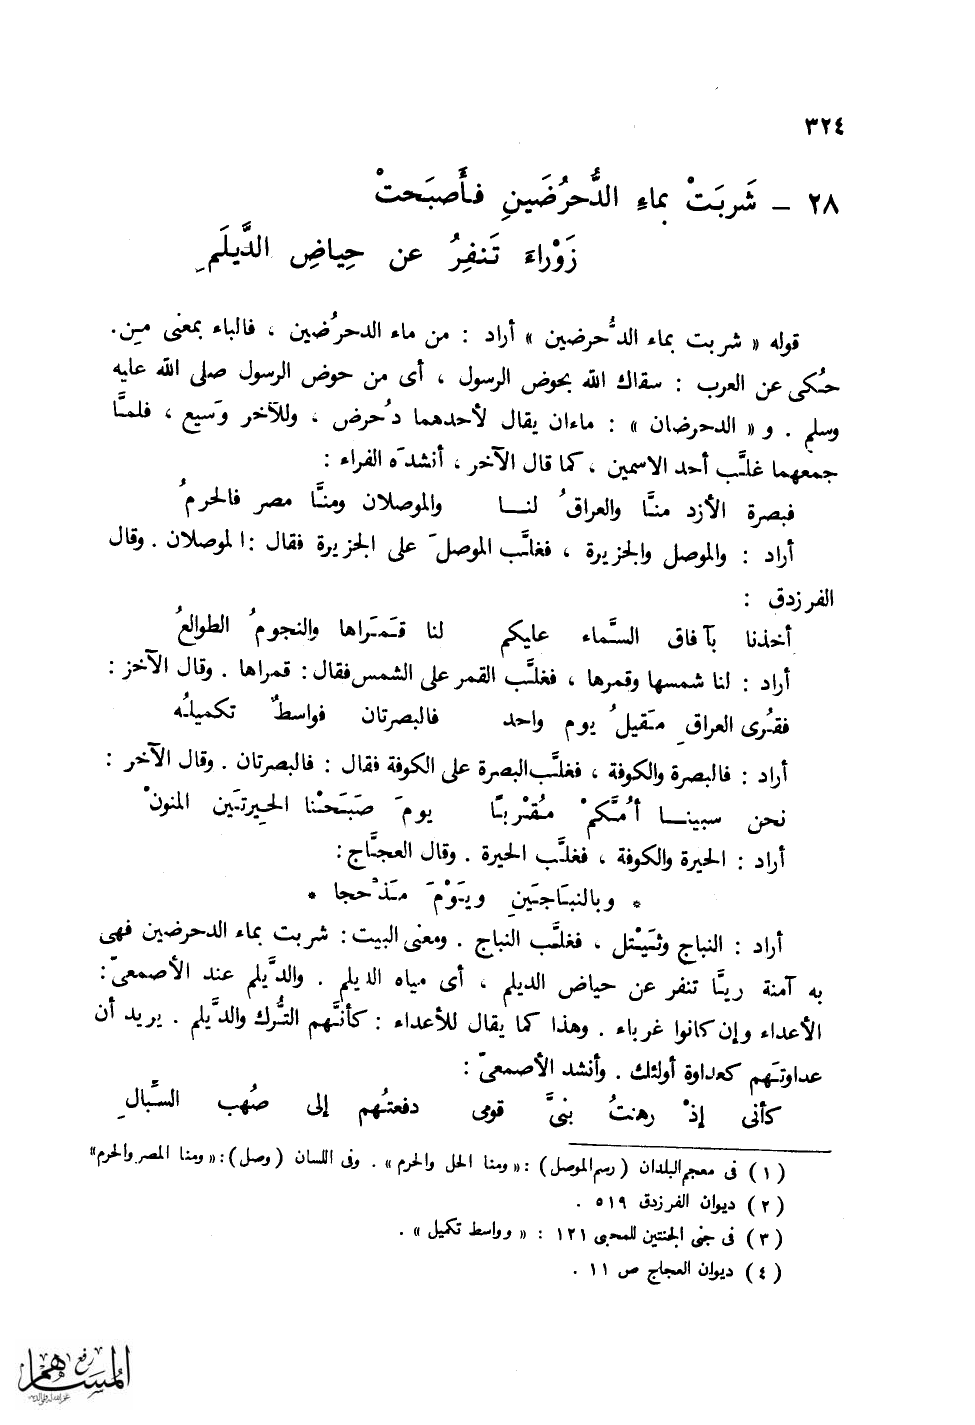 ٣٢٤
٢٨ – شَربَتْ بماءِ الدُّحرُضَينِ فأَصبَحتْ
زَوْراءَ تَنفِرُ عن حِياضِ الدَّيلَمِ
قوله « شربت بماء الدُّحرضين » أراد : من ماء الدحرُضين ، فالباء بمعنى مِن.
حُكى عن العرب : سقاك الله بحوض الرسول ، أى من حوض الرسول صلى الله عليه
وسلم . و « الدحرضان » : ماءان يقال لأحدهما دُحرض ، وللآخر وَسيع ، فلمَّا
جمعهما غلَّب أحد الاسمين ، كما قال الآخر ، أنشدَه الفراء :
فبصرة الأزد منَّا والعراقُ لنـا والموصلان ومنَّا مصر فالحرمُ
أراد : والموصل والجزيرة ، فغلَّب الموصلَ على الجزيرة فقال : الموصلان . وقال
الفرزدق :
أخذنا بآفاق السَّماء عليكم لنا قَمَراها والنجومُ الطوالعُ
أراد : لنا شمسها وقمرها ، فغلَّب القمر على الشمس فقال : قمراها . وقال الآخر :
فقُرى العراقِ مَقيلُ يوم واحد فالبصرتان فواسطٌ تكميلُه
أراد : فالبصرة والكوفة ، فغلَّب البصرة على الكوفة فقال : فالبصرتان . وقال الآخر :
نحن سبينــا أُمَّكمْ مُقْربًا يومَ صَبَحْنا الحِيرتَين المنونْ
أراد : الحيرة والكوفة ، فغلَّب الحيرة . وقال العجَّاج :
* وبالنباجَينِ ويَوْمَ مَذْحجا *
أراد : النباج وثَيْتل ، فغلَّب النباج . ومعنى البيت : شربت بماء الدحرضين فهى
به آمنة ريَّا تنفر عن حياض الديلم ، أى مياه الديلم . والدَّيلم عند الأصمعىّ :
الأعداء وإن كانوا غرباء . وهذا كما يقال للأعداء : كأنَّهم التُّرك والدَّيلم . يريد أن
عداوتَهم كعداوة أولئك . وأنشد الأصمعىّ :
كأنى إذْ رهنتُ بنىَّ قومى دفعتُهم إلى صُهب السِّبالِ
(١) فى معجم البلدان (رسم الموصل) : « ومنا الحل والحرم » . وفى اللسان (وصل) : « ومنا المصر والحرم »
(٢) ديوان الفرزدق ٥١٩ .
(٣) فى جنى الجنتين للمحبى ١٢١ : « وواسط تكميل » .
(٤) ديوان العجاج ص ١١ .
رفع
المساهم